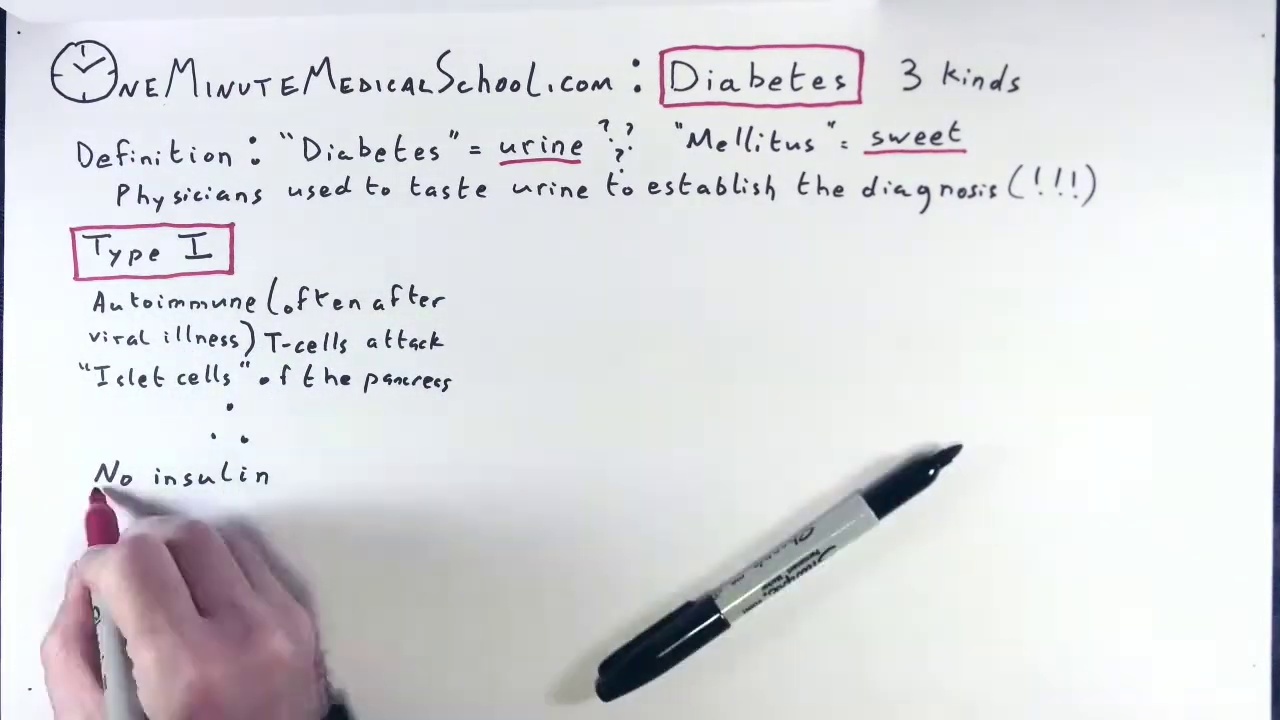 ONEMINUTEMEDICALSCHOOL.COM : Diabetes 3 kinds
Definition : "Diabetes" = urine ??? "Mellitus" = sweet
Physicians used to taste urine to establish the diagnosis (!!!)
Type I
Autoimmune (often after
viral illness) T-cells attack
"Islet cells" of the pancreas
∴
No insulin
Sharpie